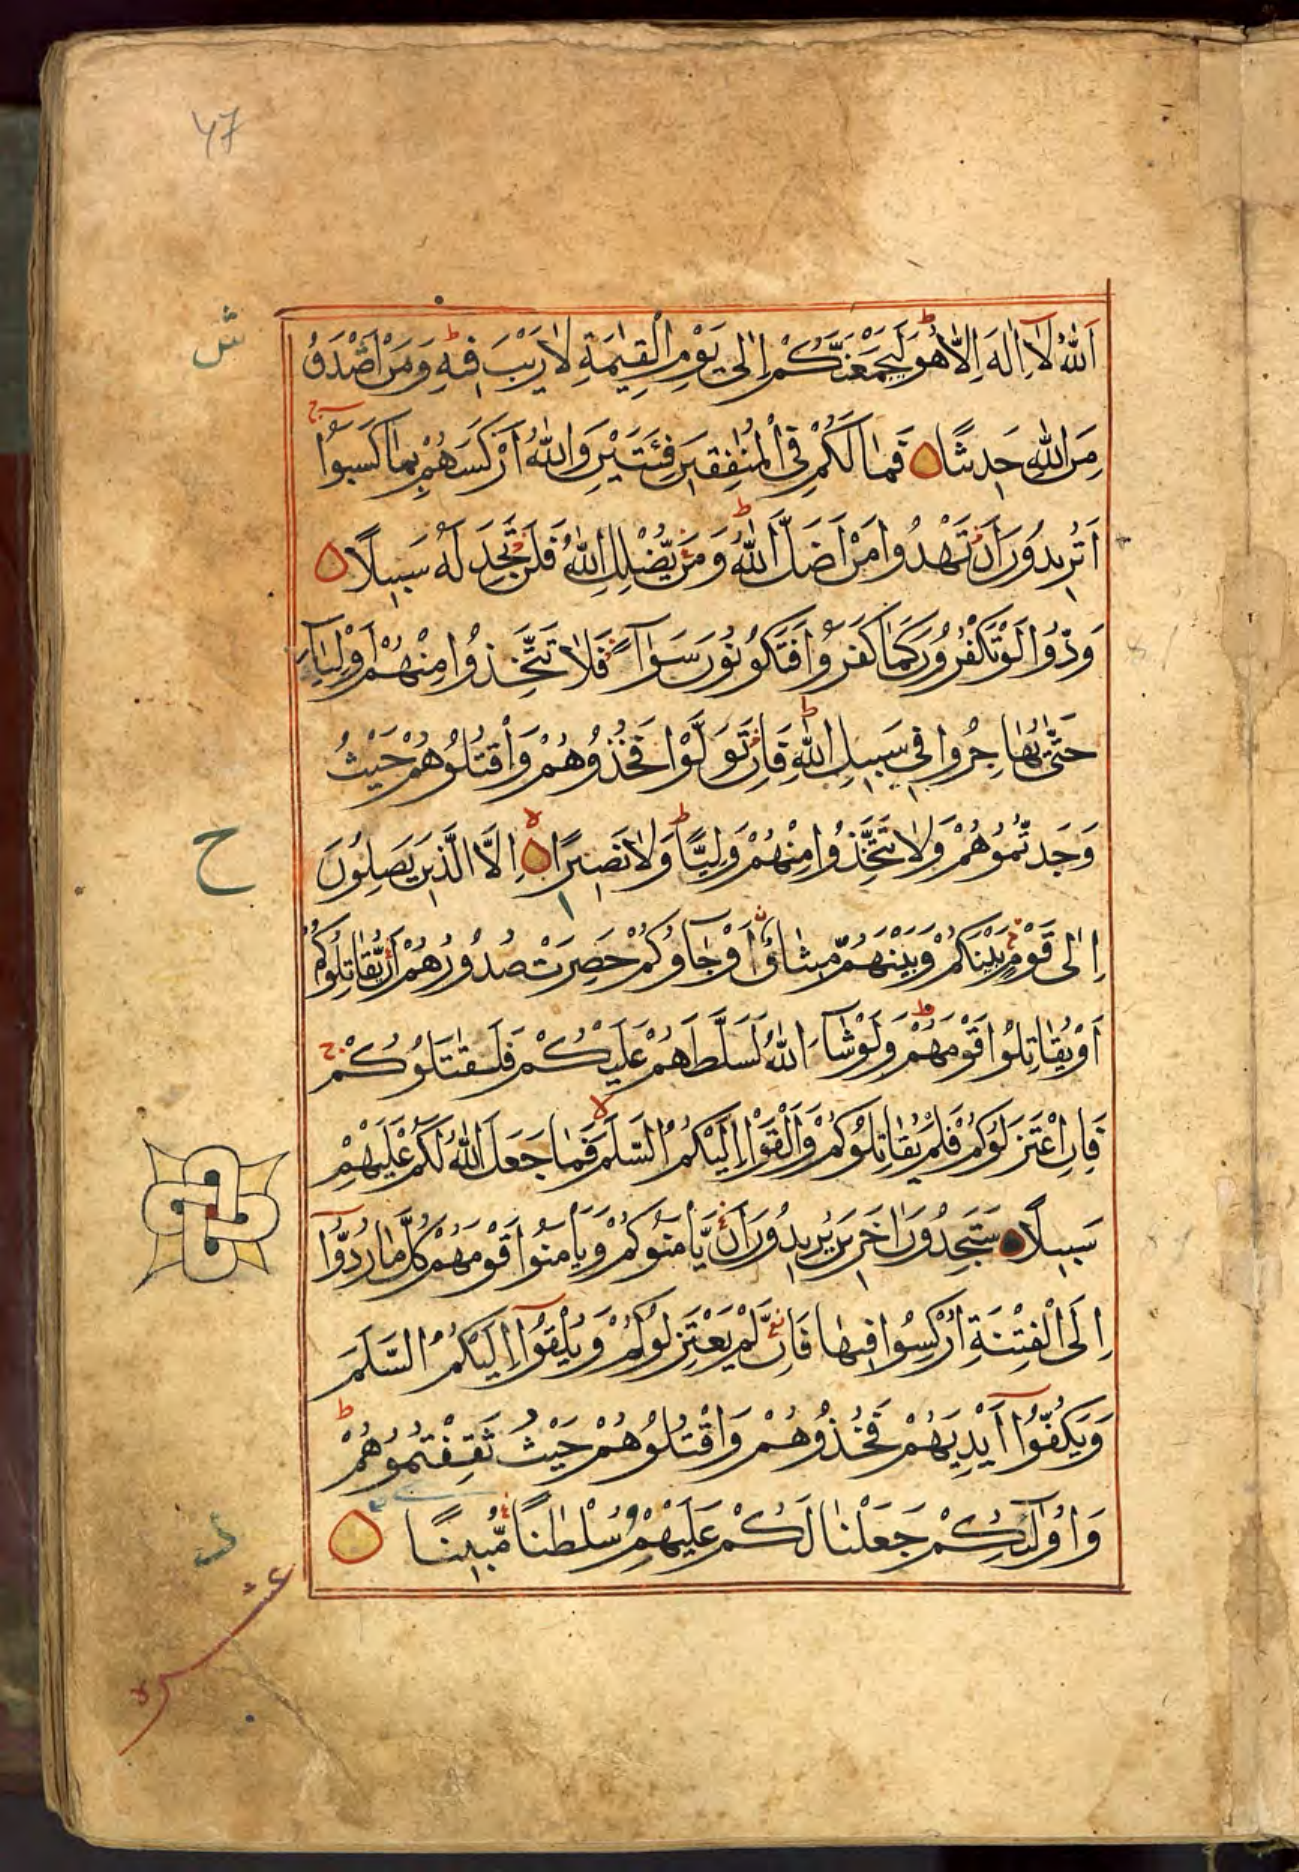 ٤٧
اَللّٰهُ لَآ اِلٰهَ اِلَّا هُوَ لَيَجْمَعَنَّكُمْ اِلٰى يَوْمِ الْقِيٰمَةِ لَا رَيْبَ فِيْهِ وَمَنْ اَصْدَقُ
مِنَ اللّٰهِ حَدِيْثًا فَمَا لَكُمْ فِى الْمُنٰفِقِيْنَ فِئَتَيْنِ وَاللّٰهُ اَرْكَسَهُمْ بِمَا كَسَبُوْا
اَتُرِيْدُوْنَ اَنْ تَهْدُوْا مَنْ اَضَلَّ اللّٰهُ وَمَنْ يُّضْلِلِ اللّٰهُ فَلَنْ تَجِدَ لَهٗ سَبِيْلًا
وَدُّوْا لَوْ تَكْفُرُوْنَ كَمَا كَفَرُوْا فَتَكُوْنُوْنَ سَوَآءً فَلَا تَتَّخِذُوْا مِنْهُمْ اَوْلِيَآءَ
حَتّٰى يُهَاجِرُوْا فِيْ سَبِيْلِ اللّٰهِ فَاِنْ تَوَلَّوْا فَخُذُوْهُمْ وَاقْتُلُوْهُمْ حَيْثُ
وَجَدْتُّمُوْهُمْ وَلَا تَتَّخِذُوْا مِنْهُمْ وَلِيًّا وَلَا نَصِيْرًا اِلَّا الَّذِيْنَ يَصِلُوْنَ
اِلٰى قَوْمٍ بَيْنَكُمْ وَبَيْنَهُمْ مِّيْثَاقٌ اَوْ جَآؤُكُمْ حَصِرَتْ صُدُوْرُهُمْ اَنْ يُّقَاتِلُوْكُمْ
اَوْ يُقَاتِلُوْا قَوْمَهُمْ وَلَوْ شَآءَ اللّٰهُ لَسَلَّطَهُمْ عَلَيْكُمْ فَلَقٰتَلُوْكُمْ
فَاِنِ اعْتَزَلُوْكُمْ فَلَمْ يُقَاتِلُوْكُمْ وَاَلْقَوْا اِلَيْكُمُ السَّلَمَ فَمَا جَعَلَ اللّٰهُ لَكُمْ عَلَيْهِمْ
سَبِيْلًا سَتَجِدُوْنَ اٰخَرِيْنَ يُرِيْدُوْنَ اَنْ يَّاْمَنُوْكُمْ وَيَاْمَنُوْا قَوْمَهُمْ كُلَّ مَا رُدُّوْٓا
اِلَى الْفِتْنَةِ اُرْكِسُوْا فِيْهَا فَاِنْ لَّمْ يَعْتَزِلُوْكُمْ وَيُلْقُوْٓا اِلَيْكُمُ السَّلَمَ
وَيَكُفُّوْٓا اَيْدِيَهُمْ فَخُذُوْهُمْ وَاقْتُلُوْهُمْ حَيْثُ ثَقِفْتُمُوْهُمْ
وَاُولٰٓئِكُمْ جَعَلْنَا لَكُمْ عَلَيْهِمْ سُلْطٰنًا مُّبِيْنًا
ح